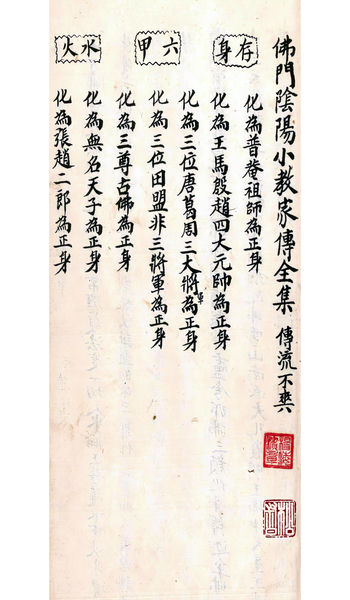 佛門陰陽小教家傳全集 傳流不與
存身
化為普菴祖師為正身
化為王馬殷趙四大元帥為正身
化為三位唐葛周三大將軍為正身
六甲
化為三位田盟非三將軍為正身
化為三尊古佛為正身
化為無名天子為正身
水火
化為張趙二郎為正身